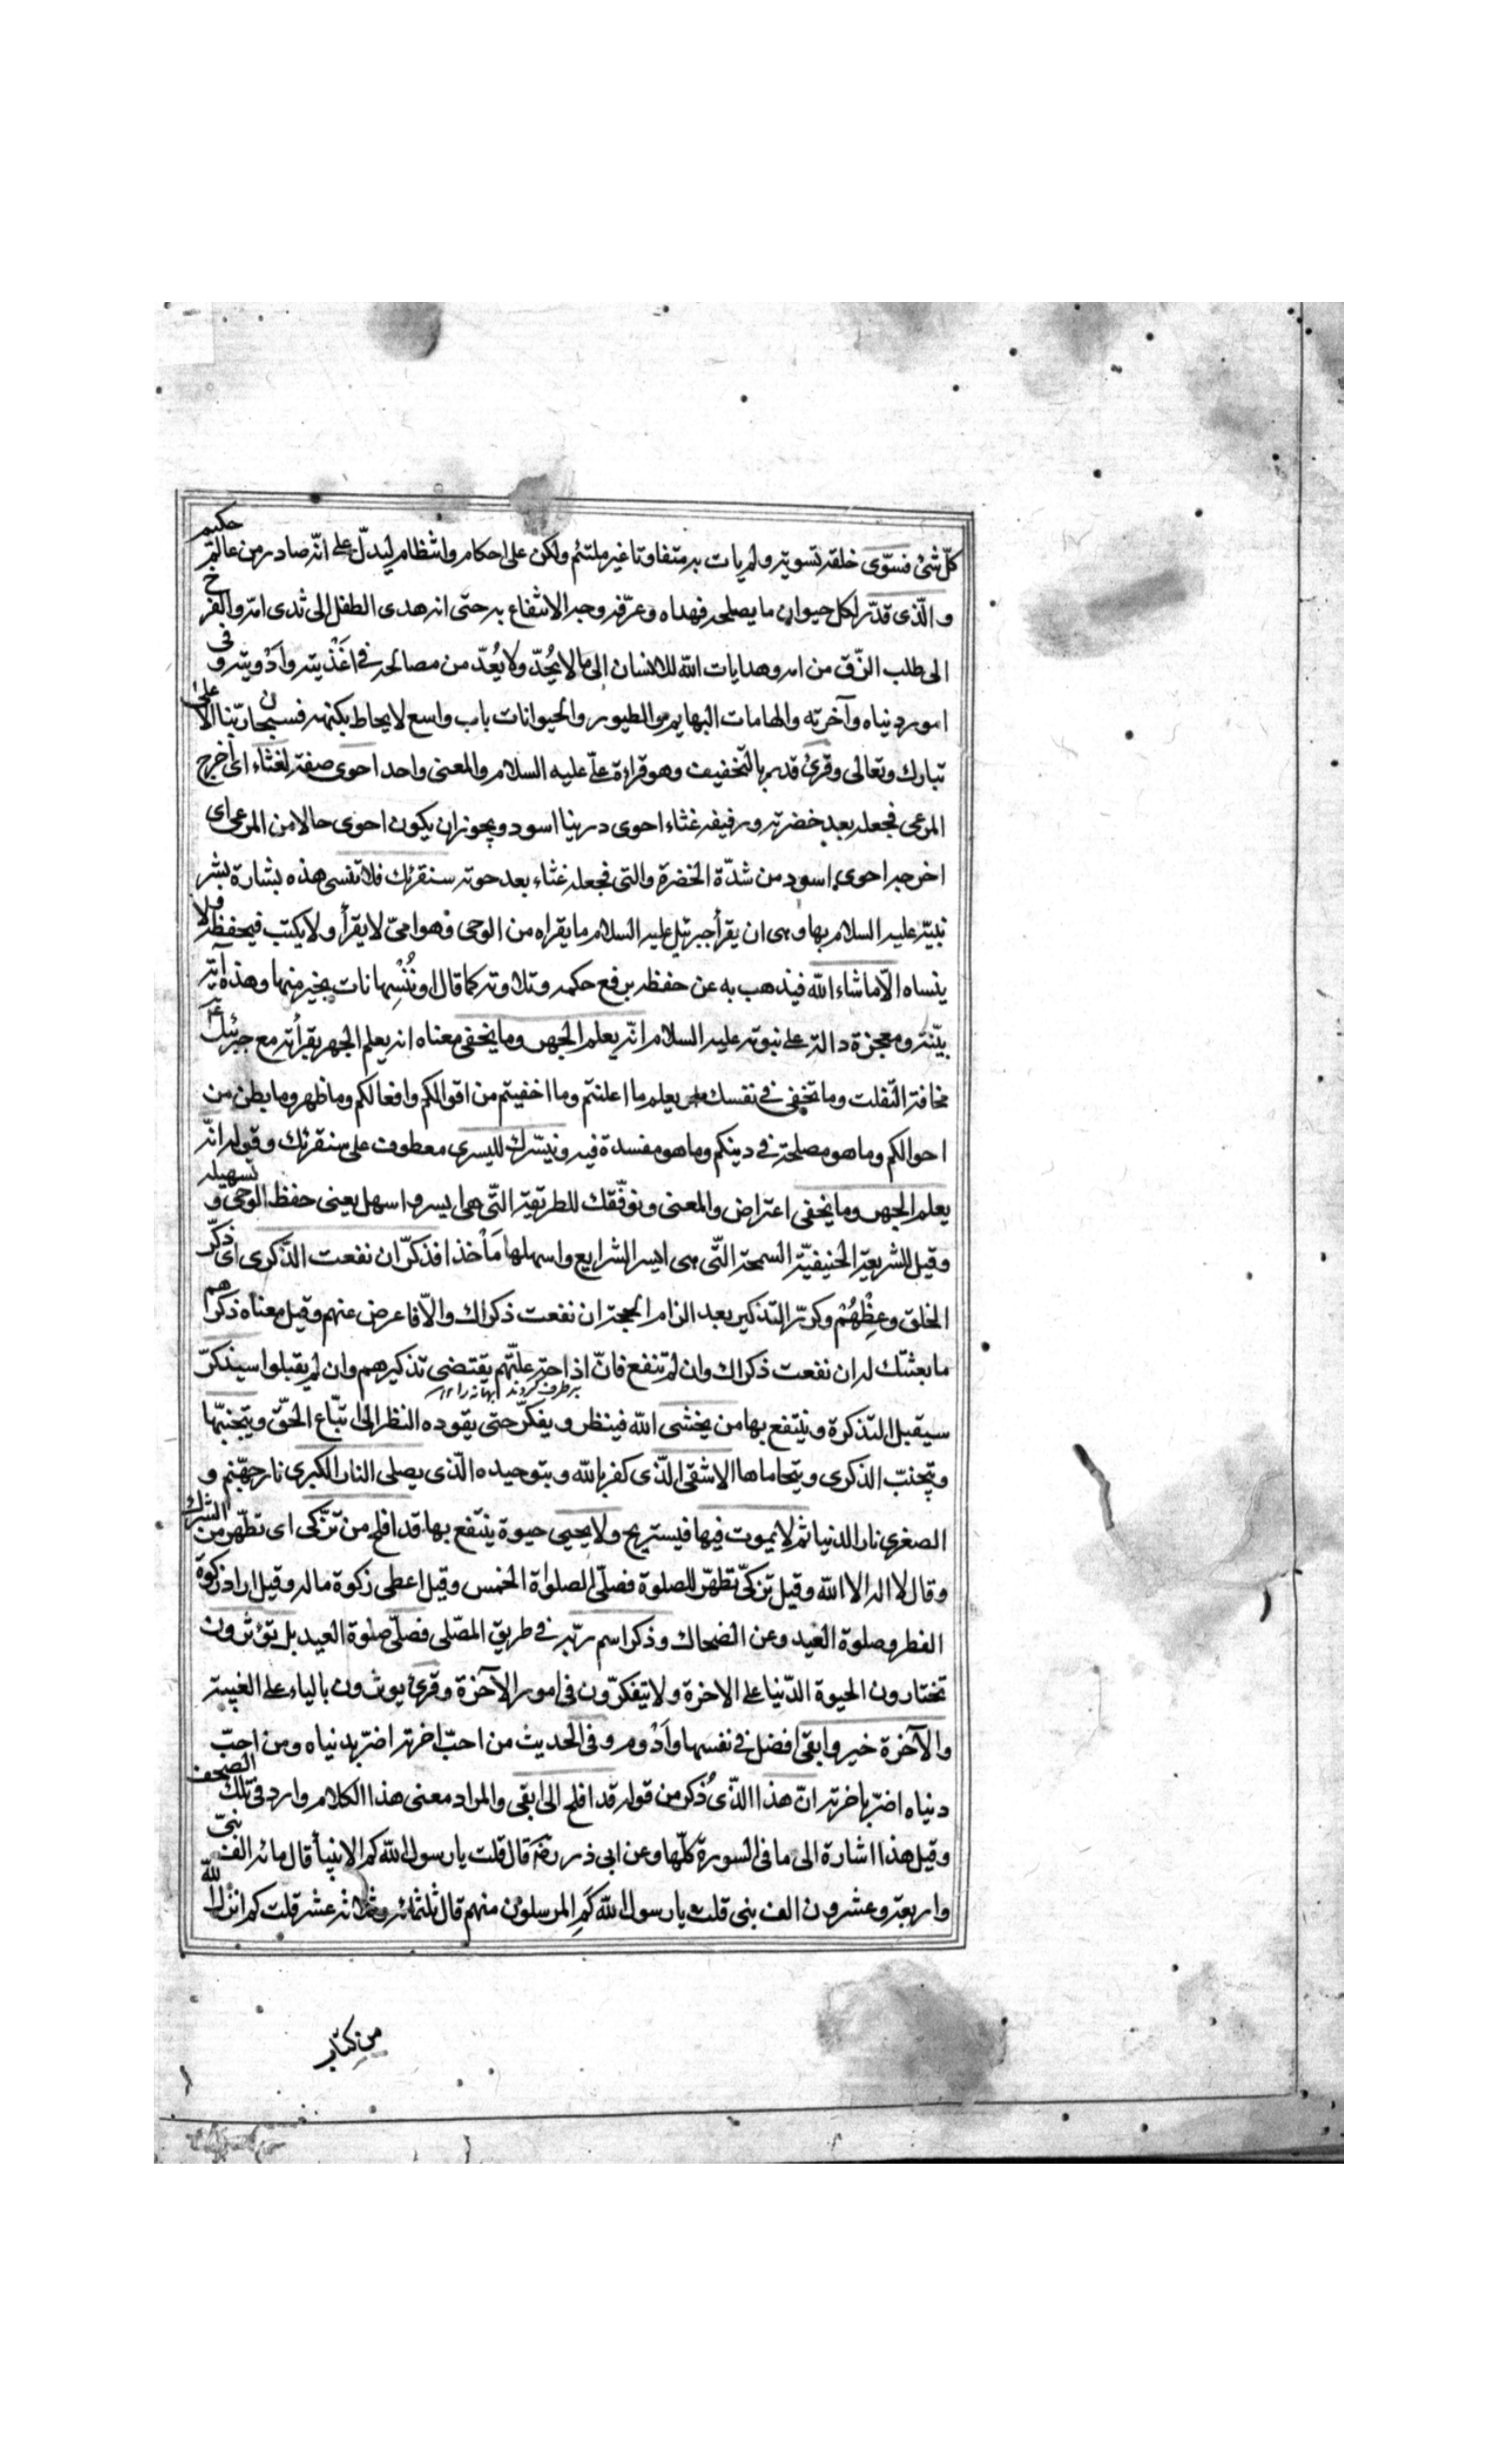 كلّ شئ فسوّى خلقه تسوية ولم يات به متفاوتا غير ملتئم ولكن على احكام وانتظام ليدلّ على انّه صادر من عالم حكيم
والّذى قدّر لكل حيوان ما يصلحه فهداه وعرّفه وجه الانتفاع به حتى انه هدى الطفل الى ثدى امّه والفرخ
الى طلب الزّق من امه وهدايات الله للانسان الى ما لا يُحدّ ولا يُعدّ من مصالحه فى اغذيته وادويته وفى
امور دنياه وآخرته والهامات البهايم والطيور والحيوانات باب واسع لا يحاط بكنهه فسبحان ربّنا الاعلى
تبارك وتعالى وقرئ قدر بالتخفيف وهو قراءة علىّ عليه السلام والمعنى واحد احوى صفة لغثاء اى اخرج
المرعى فجعله بعد خضرته ورفيفه غثاء احوى درينا اسود ويجوز ان يكون احوى حالا من المرعى اى
اخرجه احوى اسود من شدّة الخضرة والتى فجعله غثاء بعد حوته سنقرئك فلا تنسى هذه بشارة بشر
نبيّه عليه السلام بها وهى ان يقرأ جبرئيل عليه السلام ما يقراه من الوحى وهو امىّ لا يقرأ ولا يكتب فيحفظه فلا
ينساه الّا ما شاء الله فيذهب به عن حفظه برفع حكمه وتلاوته كما قال او نُنْسِها نات بخير منها وهذه آية
بيّنة ومعجزة دالة على نبوته عليه السلام انّه يعلم الجهر وما يخفى معناه انه يعلم الجهر بقرأته مع جبرئيل ع
مخافة التفلت وما تخفى فى نفسك يعلم ما اعلنتم وما اخفيتم من اقوالكم وافعالكم وما ظهر وما بطن من
احوالكم وما هو مصلحة فى دينكم وما هو مفسدة فيه ونيسّرك لليسرى معطوف على سنقرئك وقوله انّه
يعلم الجهر وما يخفى اعتراض والمعنى ونوفّقك للطريقة التّى هى ايسر واسهل يعنى حفظ الوحى وتسهيله
وقيل للشريعة الحنيفيّة السمحة التّى هى ايسر الشرايع واسهلها مأخذا فذكّر ان نفعت الذّكرى اى ذكّر
الخلق وعِظْهُمْ وكرّر التذكير بعد الزام الحجة ان نفعت ذكراك والّا فاعرض عنهم وقيل معناه ذكرهم
ما بعثتك له ان نفعت ذكراك وان لم تنفع فانّ اذاحة علّتهم يقتضى تذكيرهم وان لم يقبلوا سيذكّر
برطرف كردند بهانه را
سيقبل التذكرة وينتفع بها من يخشى الله فينظر ويفكّر حتى يقوده النظر الى اتبّاع الحقّ ويتجنبّها
ويتجنبّ الذكرى ويتحاماها الاشقى الذّى كفر بالله وبتوحيده الّذى يصلى النار الكبرى نار جهنّم و
الصغرى نار الدنيا ثم لا يموت فيها فيستريح ولا يحيى حيوة ينتفع بها قد افلح من تزّكى اى تطهّر من الشرك
وقال لا اله الا الله وقيل تزكىّ تطهّر للصلوة فصلّى الصلواة الخمس وقيل اعطى زكوة ماله وقيل اراد زكوة
الفطر وصلوة العيد وعن الضحاك وذكر اسم ربّه فى طريق المصّلى فصلّى صلوة العيد بل تؤثرون
تختارون الحيوة الدّنيا على الاخرة ولا يتفكرّون فى امور الآخرة وقرئ يوثرون بالياء على الغيبة
والآخرة خير وابقى افضل فى نفسها وادوم وفى الحديث من احبّ اخرته اضرّ بدنياه ومن احبّ
دنياه اضرّ باخرته انّ هذا الذّى ذُكر من قوله قد افلح الى ابقى والمراد معنى هذا الكلام وارد فى تلك الصحف
وقيل هذا اشارة الى ما فى السورة كلّها وعن ابى ذر رضه قال قلت يا رسول الله كم الانبيأ قال مائة الف نبىّ
واربعة وعشرون الف نبى قلت يا رسول الله كَمِ المرسلون منهم قال ثلثمائة وثلاثة عشر قلت كم انزل الله
من كتاب